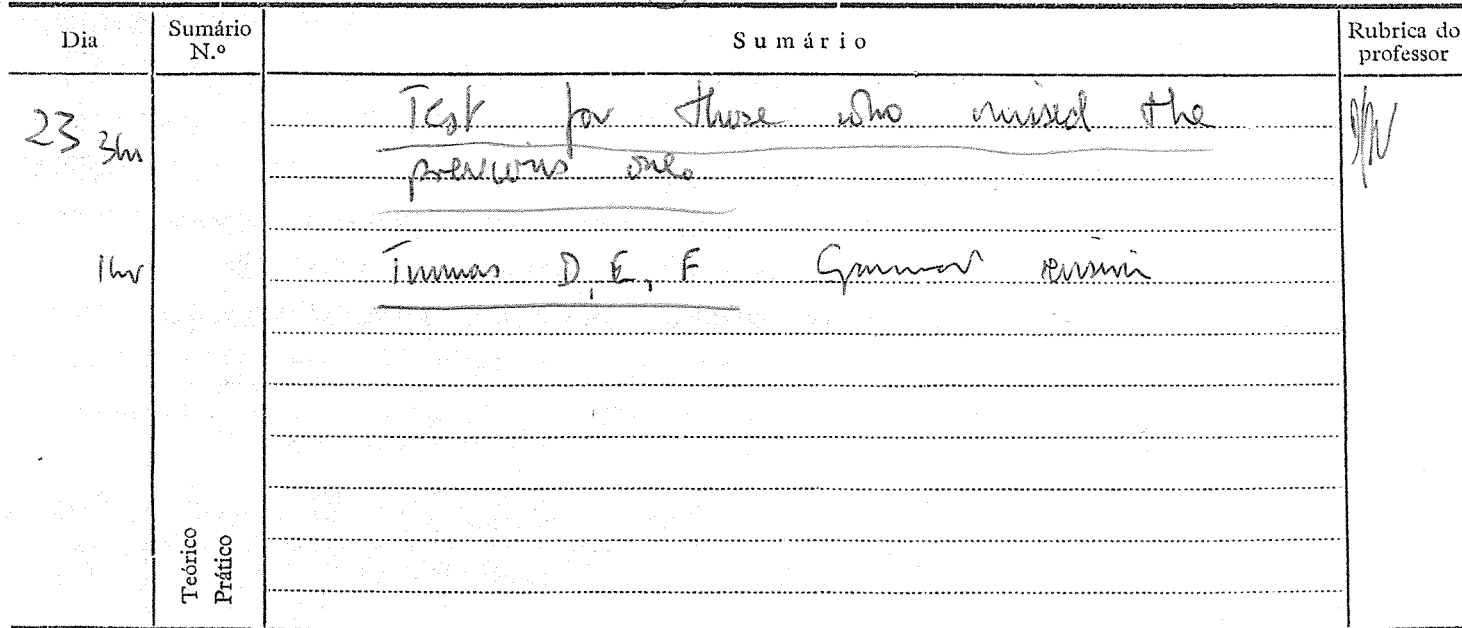 Dia Sumário N.º Sumário Rubrica do professor
23 3hr Test for those who missed the
previous one.
1hr Turmas D, E, F Grammar revision
Teórico
Prático